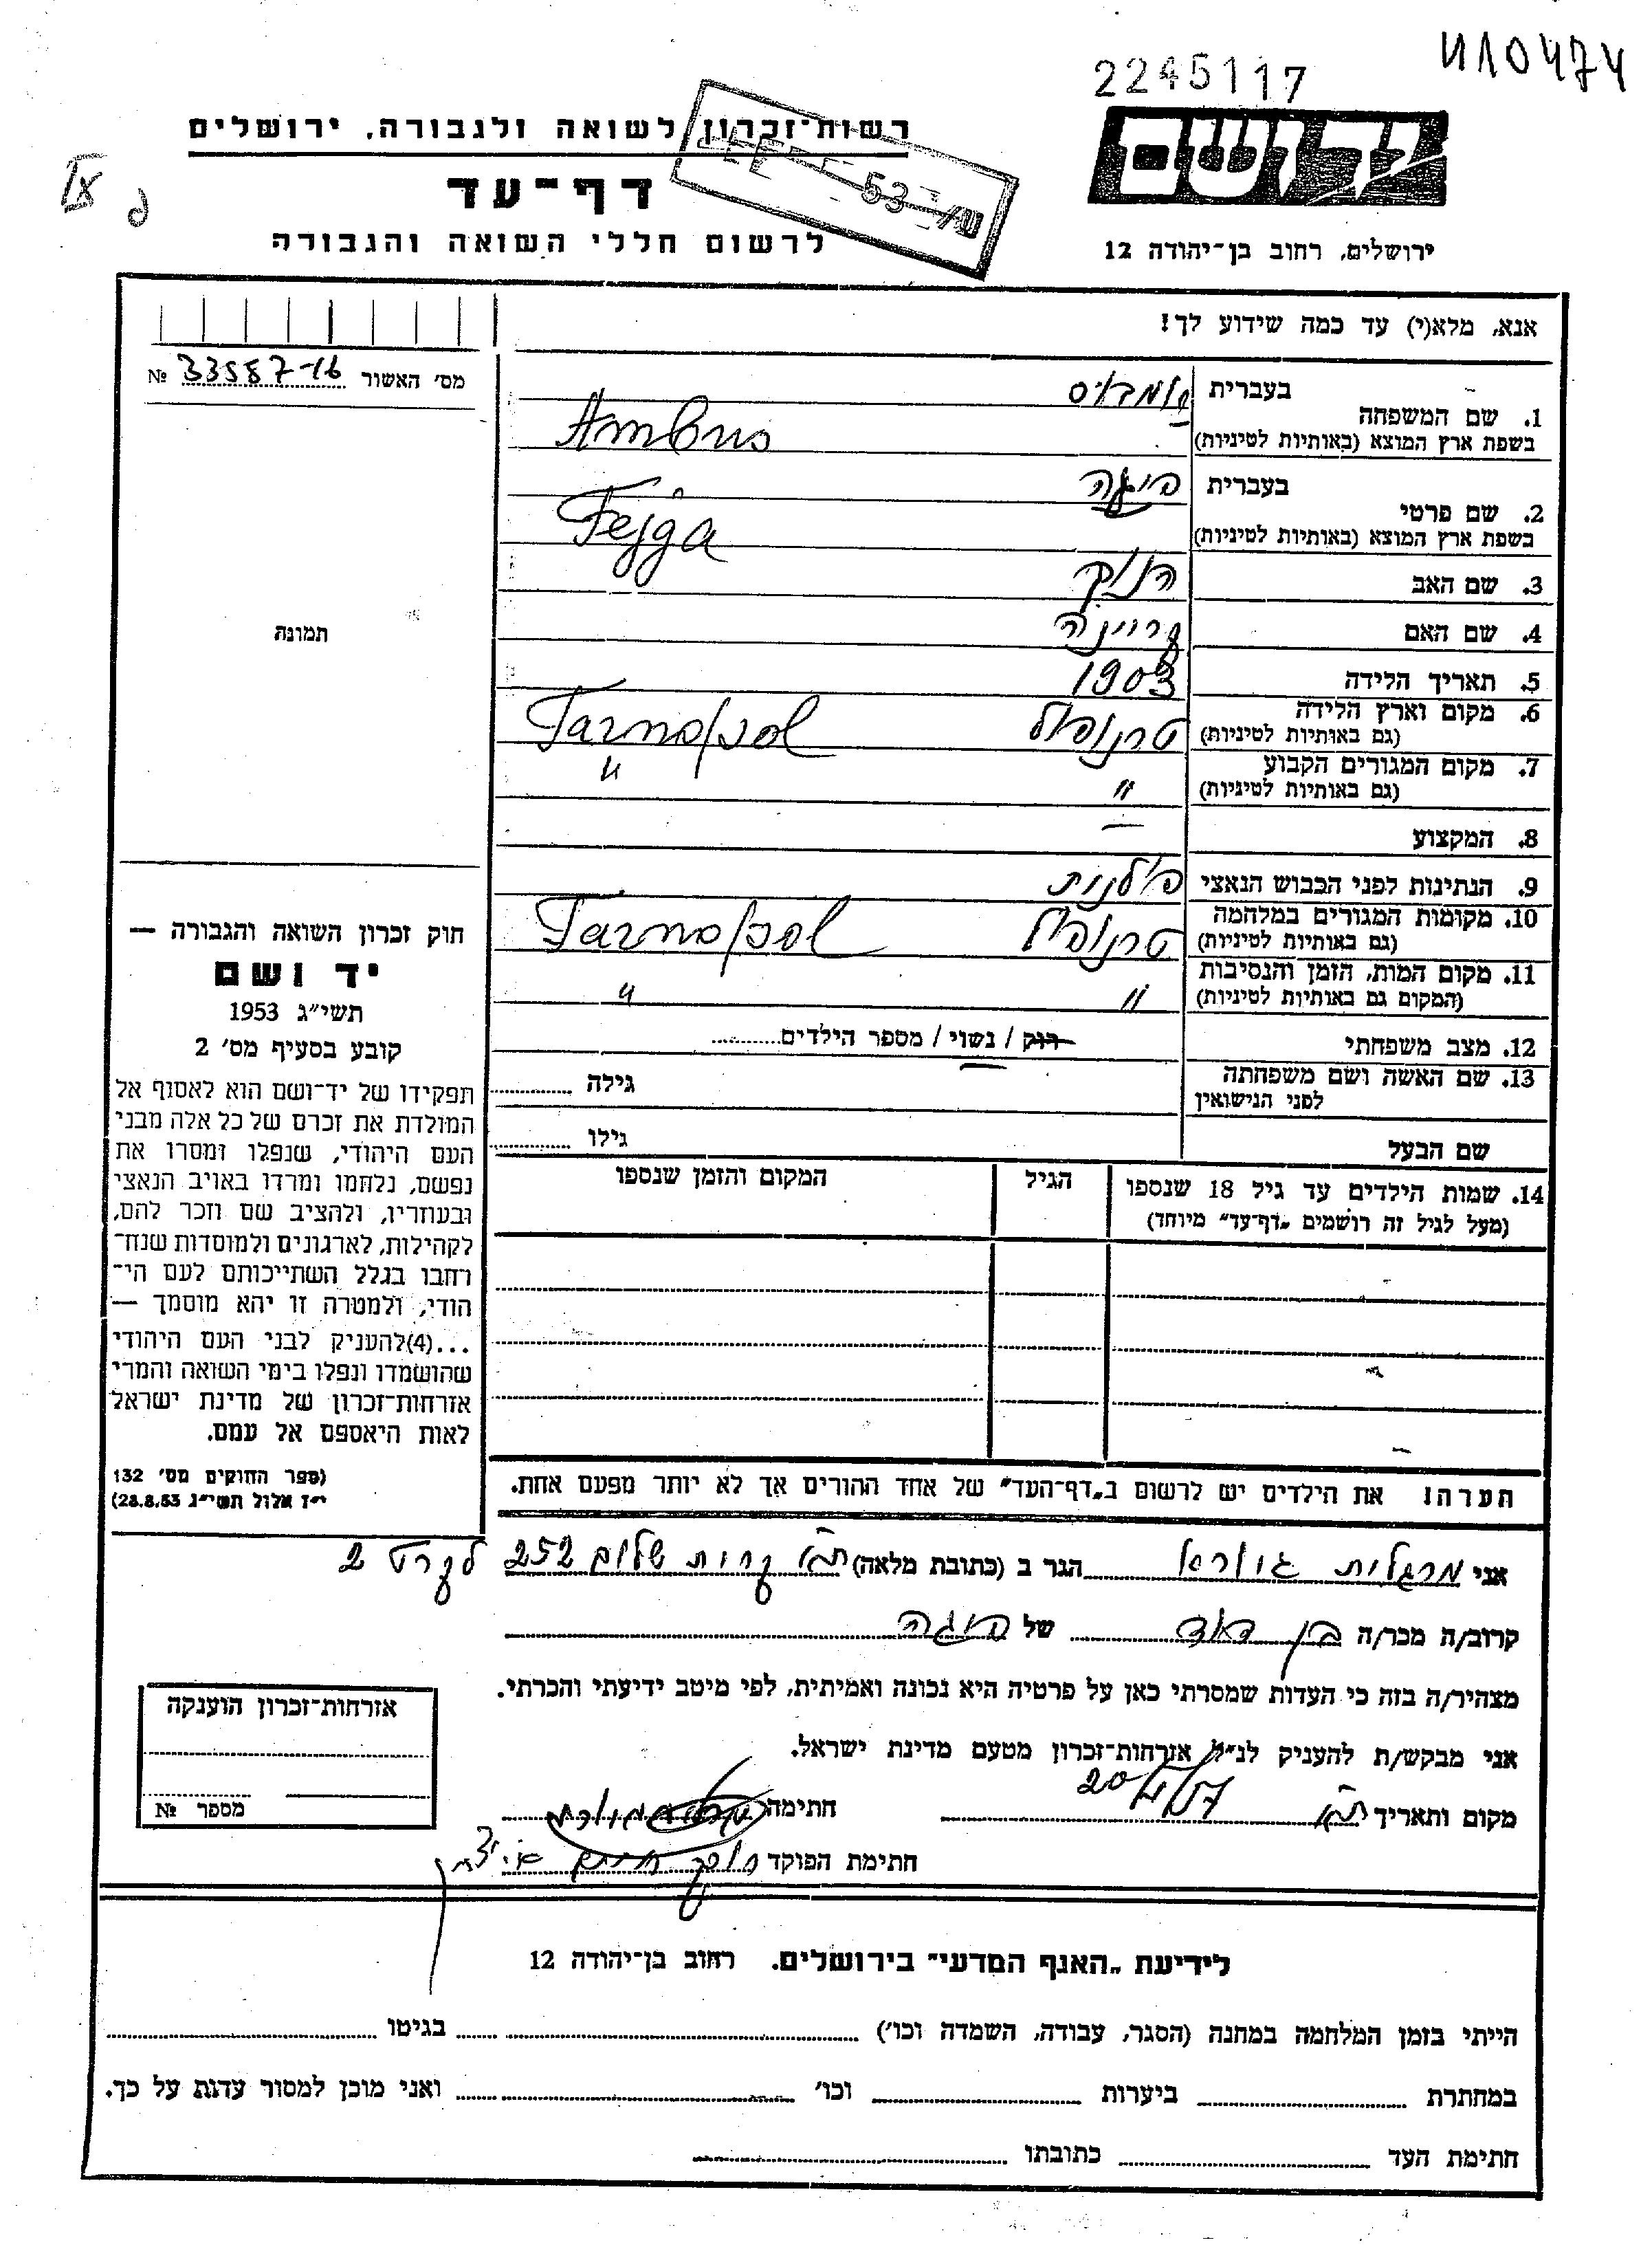 2245117
יד ושם
ירושלים, רחוב בן־יהודה 12
רשות־זכרון לשואה ולגבורה, ירושלים
דף־עד
לרשום חללי השואה והגבורה
אנא, מלא(י) עד כמה שידוע לך!
מס׳ האשור № 33587-16
תמונה
בעברית
1. שם המשפחה
בשפת ארץ המוצא (באותיות לטיניות) Ambus
בעברית פייגה
2. שם פרטי
בשפת ארץ המוצא (באותיות לטיניות) Fejga
3. שם האב
4. שם האם
5. תאריך הלידה 1903
6. מקום וארץ הלידה טרנופול Tarnopol
(גם באותיות לטיניות)
7. מקום המגורים הקבוע " "
(גם באותיות לטיניות)
8. המקצוע —
9. הנתינות לפני הכבוש הנאצי פולנית
10. מקומות המגורים במלחמה טרנופול Tarnopol
(גם באותיות לטיניות)
11. מקום המות, הזמן והנסיבות " "
(המקום גם באותיות לטיניות)
12. מצב משפחתי רווק / נשוי / מספר הילדים
13. שם האשה ושם משפחתה גילה
לפני הנישואין
שם הבעל גילו
14. שמות הילדים עד גיל 18 שנספו הגיל המקום והזמן שנספו
(מעל לגיל זה רושמים „דף־עד" מיוחד)
חוק זכרון השואה והגבורה —
יד ושם
תשי״ג 1953
קובע בסעיף מס׳ 2
תפקידו של יד־ושם הוא לאסוף אל
המולדת את זכרם של כל אלה מבני
העם היהודי, שנפלו ומסרו את
נפשם, נלחמו ומרדו באויב הנאצי
ובעוזריו, ולהציב שם וזכר להם,
לקהילות, לארגונים ולמוסדות שנח־
רחבו בגלל השתייכותם לעם הי־
הודי, ולמטרה זו יהא מוסמך —
...(4)להעניק לבני העם היהודי
שהושמדו ונפלו בימי השואה והמרי
אזרחות־זכרון של מדינת ישראל
לאות היאספם אל עמם.
(ספר החוקים מס׳ 132
י״ז אלול תשי״ג 28.8.53)
הערה! את הילדים יש לרשום ב„דף־העד" של אחד ההורים אך לא יותר מפעם אחת.
אני מרגלית הגר ב (כתובת מלאה) ת״א קרית שלום 252
קרוב/ה מכר/ה בן דוד של פייגה
מצהיר/ה בזה כי העדות שמסרתי כאן על פרטיה היא נכונה ואמיתית, לפי מיטב ידיעתי והכרתי.
אני מבקש/ת להעניק לנ״ל אזרחות־זכרון מטעם מדינת ישראל.
מקום ותאריך ת״א חתימה
חתימת הפוקד
אזרחות־זכרון הוענקה
מספר №
לידיעת „האגף המדעי" בירושלים. רחוב בן־יהודה 12
הייתי בזמן המלחמה במחנה (הסגר, עבודה, השמדה וכו׳) בגיטו
במחתרת ביערות וכו׳ ואני מוכן למסור עדות על כך.
חתימת העד כתובתו